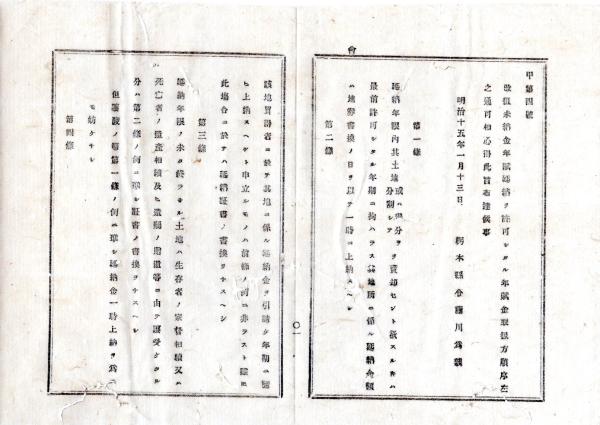 甲第四號
改租未納金年賦延納ヲ許可シタル年賦金取扱方順序左
之通可相心得此旨布達候事
明治十五年一月十三日
栃木縣令藤川爲親
第一條
延納年限內其土地
或ハ幾分ヲ
分割シ
賣却セント欲スル者ハ
最前許可シタル年期ニ拘ハラス其地所ニ係ル延納金額
ハ地券書換ノ日ヲ以テ一時ニ上納スヘシ
第二條
該地買得者ニ於テ其地ニ係ル延納金ヲ引請ケ年期ニ
ヒ上納スヘシト申立ルモノハ前條ノ例ニ非ラスト雖𪜈
此場合ニ於テハ延納証書ノ書換ヲナスヘシ
第三條
延納年限ノ未タ終ラサル土地ハ生存者ノ家督相續又ハ
死亡者ノ遺產相續及ヒ遺囑ノ贈遺等ニ由テ讓受クル
分ハ第二條ノ例ニ準シ証書ノ書換ヲナスヘシ
但ノ第一條ノ例ニ準シ延納金一時上納ヲ爲ス
モ妨ケナシ
第四條
會
〇一